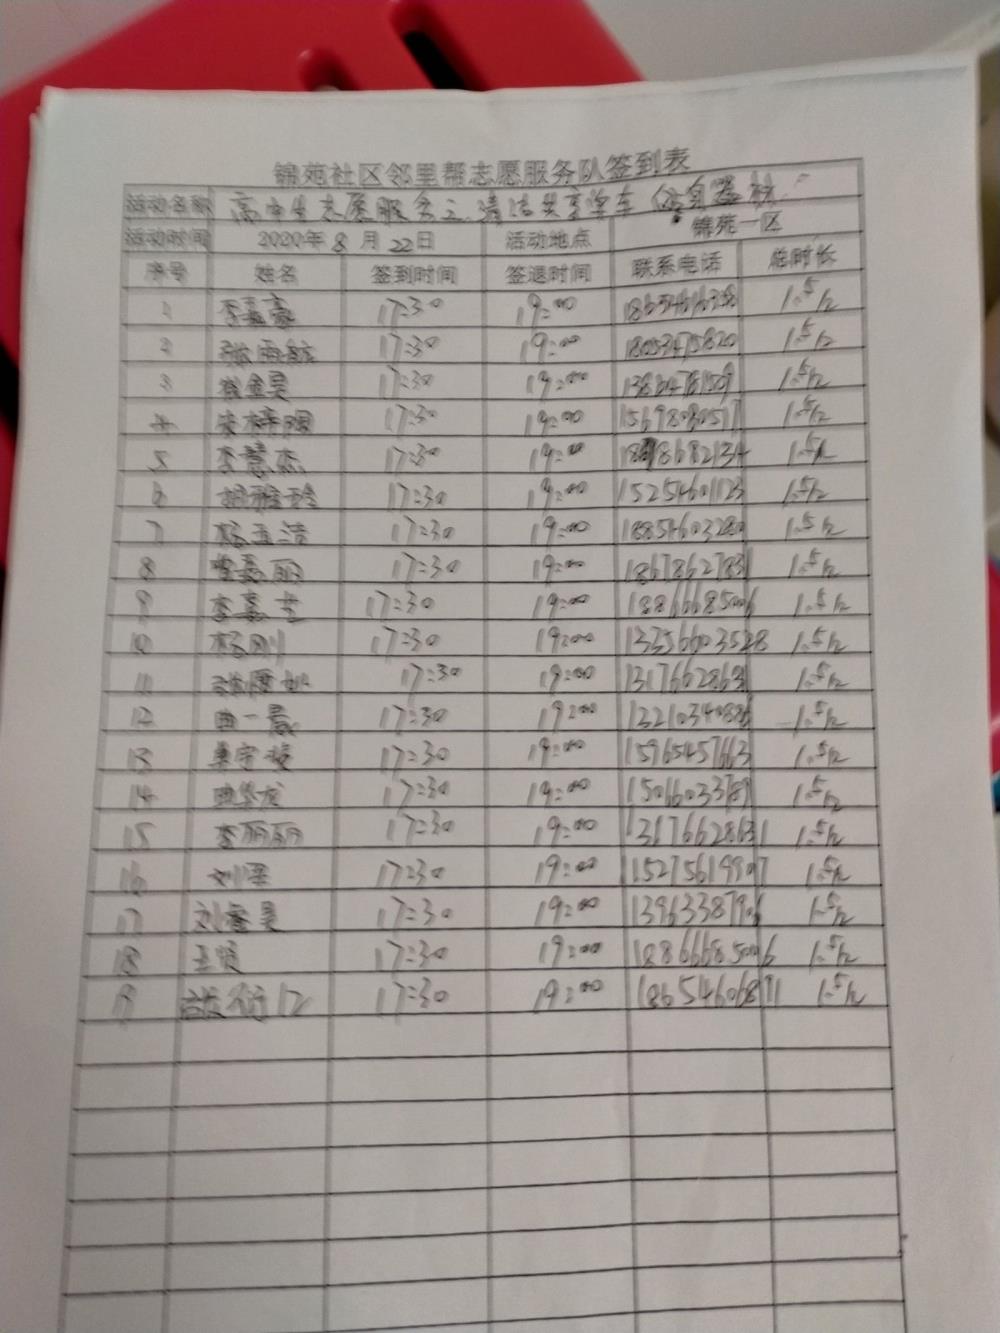 锦苑社区邻里帮志愿服务队签到表
活动名称 高中生志愿服务之清洁共享单车
活动时间 2020年8月22日 活动地点 锦苑一区
序号 姓名 签到时间 签退时间 联系电话 总时长
1 李嘉豪 17:30 19:00 1.5h
2 张雨航 17:30 19:00 18053475820 1.5h
3 17:30 19:00 1.5h
4 17:30 19:00 15698080517 1.5h
5 李慧杰 17:30 19:00 1.5h
6 胡雅玲 17:30 19:00 15254601123 1.5h
7 杨孟浩 17:30 19:00 18854603280 1.5h
8 嘉丽 17:30 19:00 18678627831 1.5h
9 李嘉 17:30 19:00 18866685006 1.5h
10 杨刚 17:30 19:00 13356603528 1.5h
11 17:30 19:00 13176628631 1.5h
12 曲一晨 17:30 19:00 13210340886 1.5h
13 17:30 19:00 15965457663 1.5h
14 17:30 19:00 15066033789 1.5h
15 李丽丽 17:30 19:00 13176628631 1.5h
16 17:30 19:00 15275619907 1.5h
17 刘睿昊 17:30 19:00 13963387906 1.5h
18 王贤 17:30 19:00 18866685006 1.5h
19 17:30 19:00 18654606871 1.5h